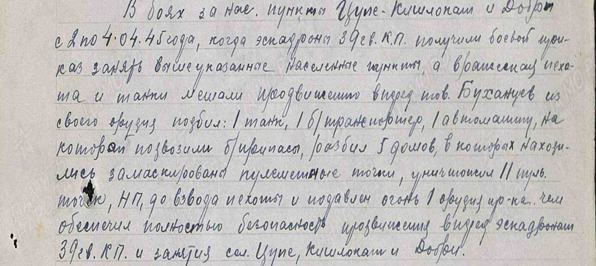 В боях за нас. пункты Цупе-Кишлопат и Добри
с 2 по 4.04.45 года, когда эскадроны 39 гв. К.П. получили боевой при-
каз занять вышеуказанные населенные пункты, а вражеская пехо-
та и танки мешали продвижению вперед тов. Буханцев из
своего орудия подбил: 1 танк, 1 б/транспортер, 1 автомашину, на
которой подвозили б/припасы, разбил 5 домов, в которых находи-
лись замаскированы пулеметные точки, уничтожил 11 пул.
точек, НП, до взвода пехоты и подавлен огонь 1 орудия пр-ка. чем
обеспечил полностью безопасность продвижения вперед эскадронам
39 гв. К.П. и занятия сел. Цупе, Кишлопат и Добри.